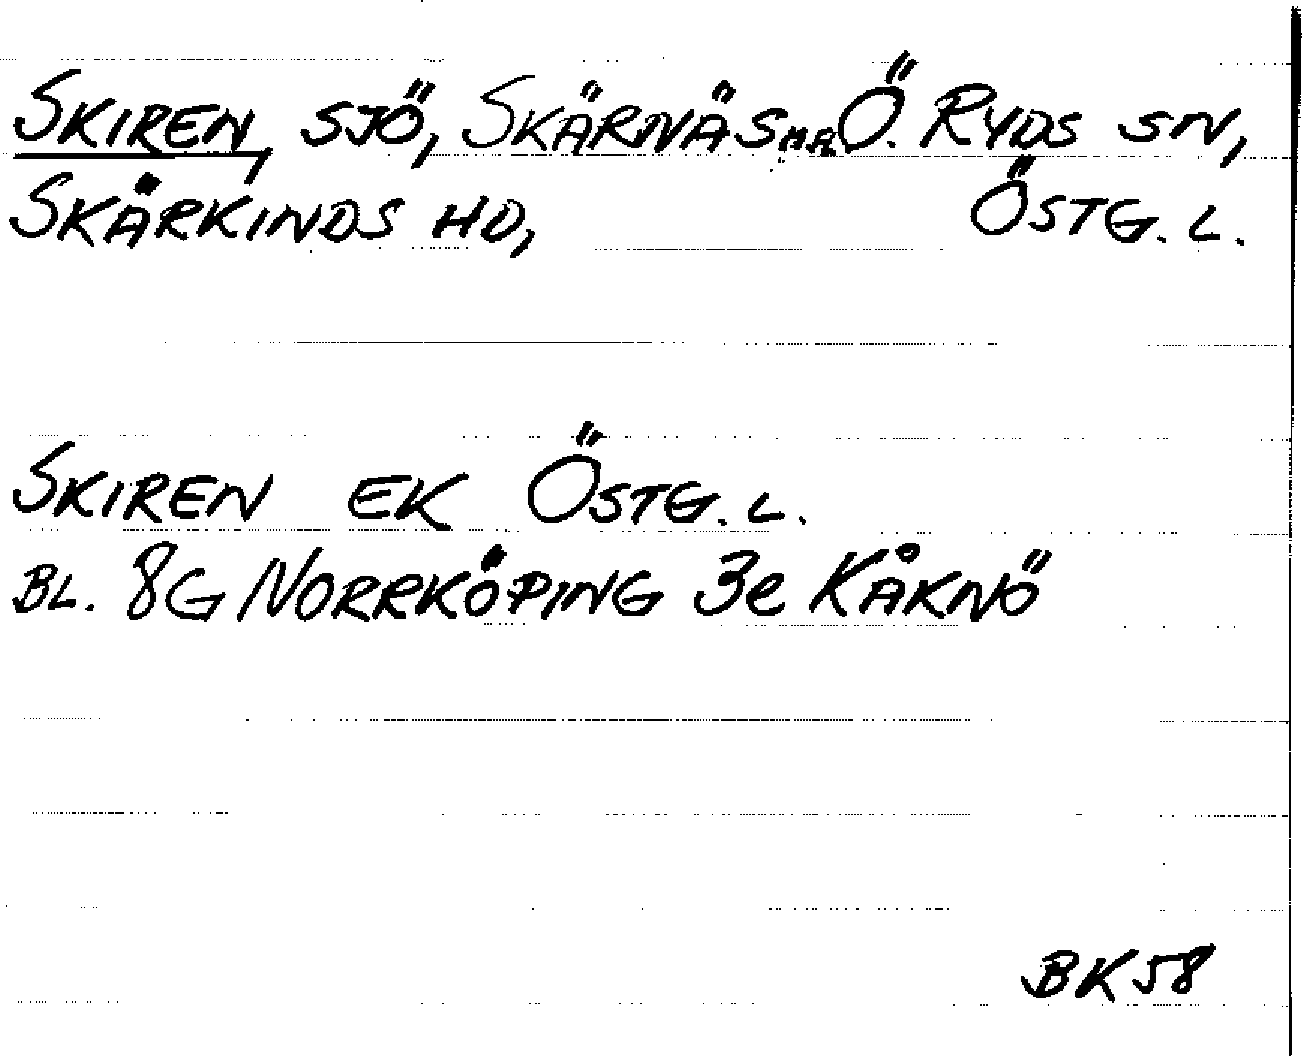 SKIREN, SJÖ, SKÄRNÄS Ö. RYDS SN,
SKÄRKINDS HD, ÖSTG. L.
SKIREN EK ÖSTG. L.
BL. 8G NORRKÖPING 3e KÅKNÖ
BK58